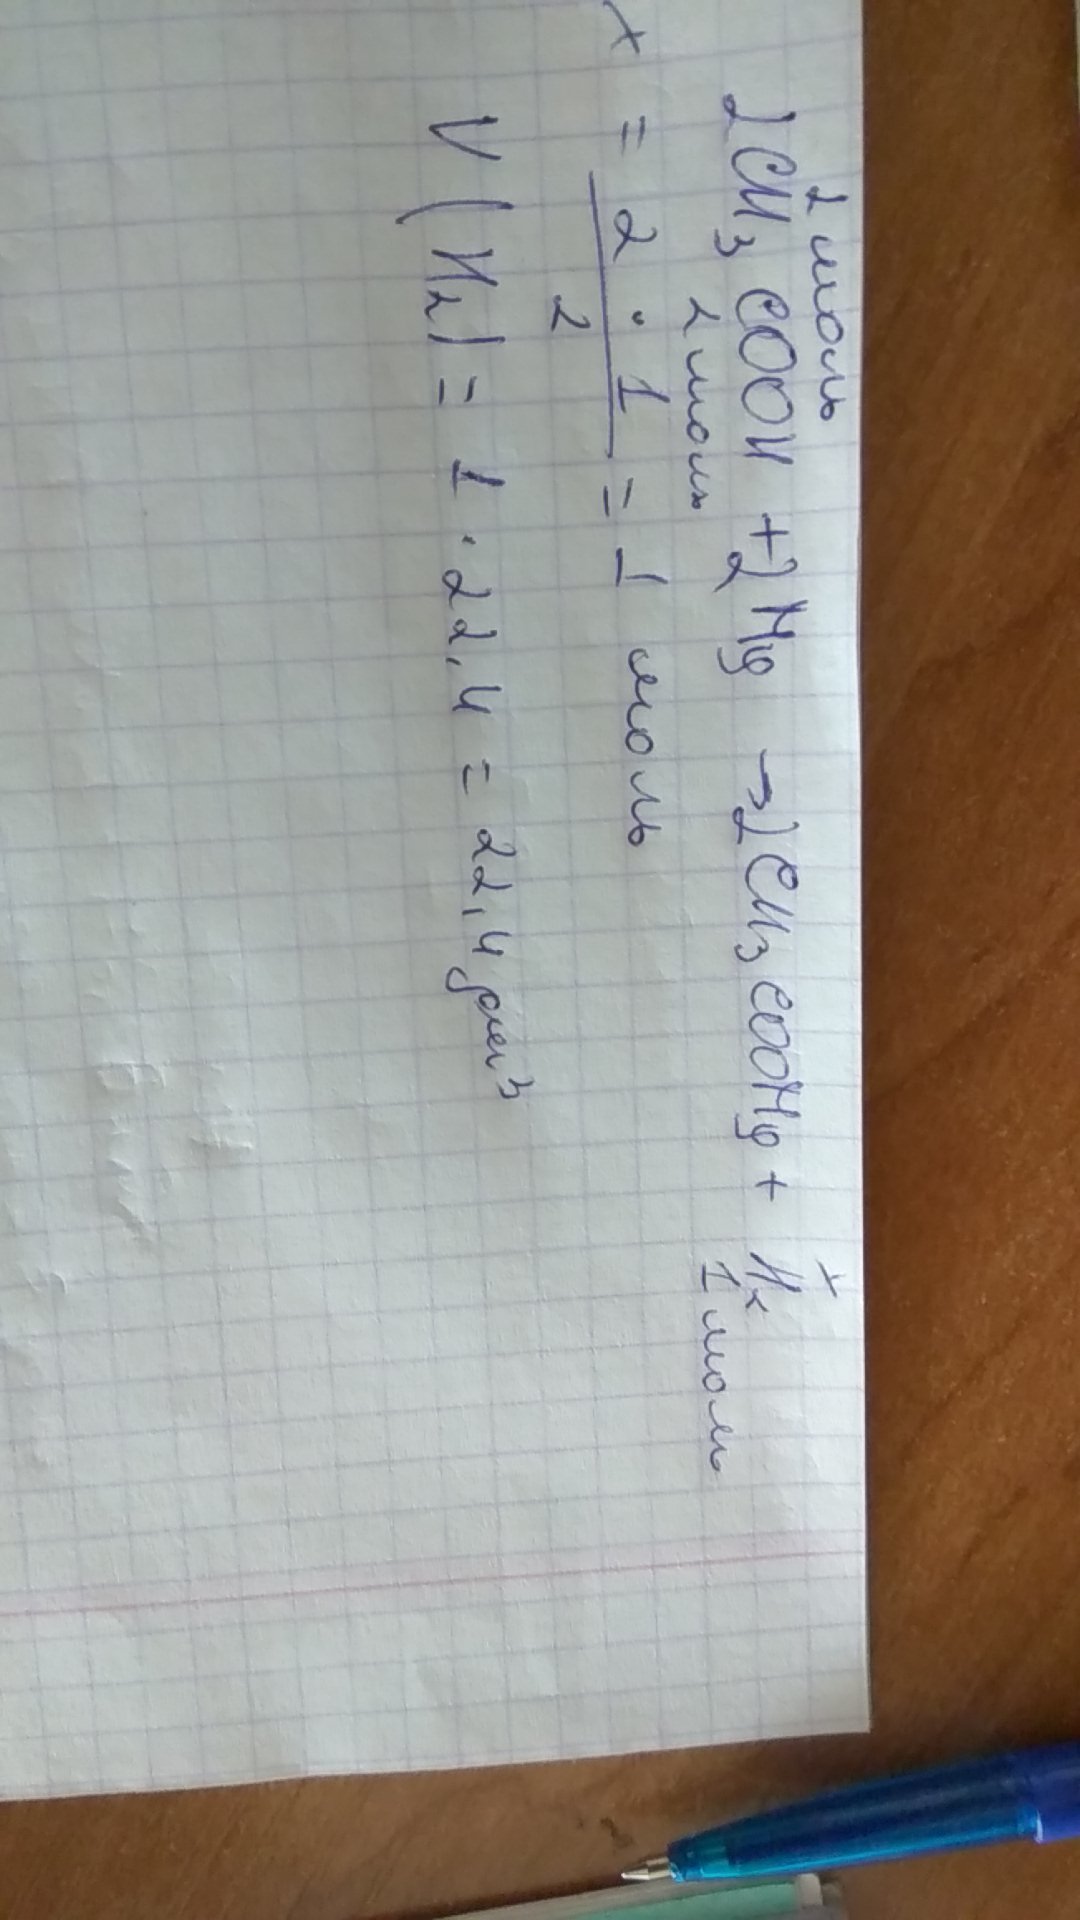 2 моль x
2CH3COOH + 2Mg → 2CH3COOMg + H2
2 моль 1 моль
x = 2 · 1 / 2 = 1 моль
V(H2) = 1 · 22,4 = 22,4 дм3